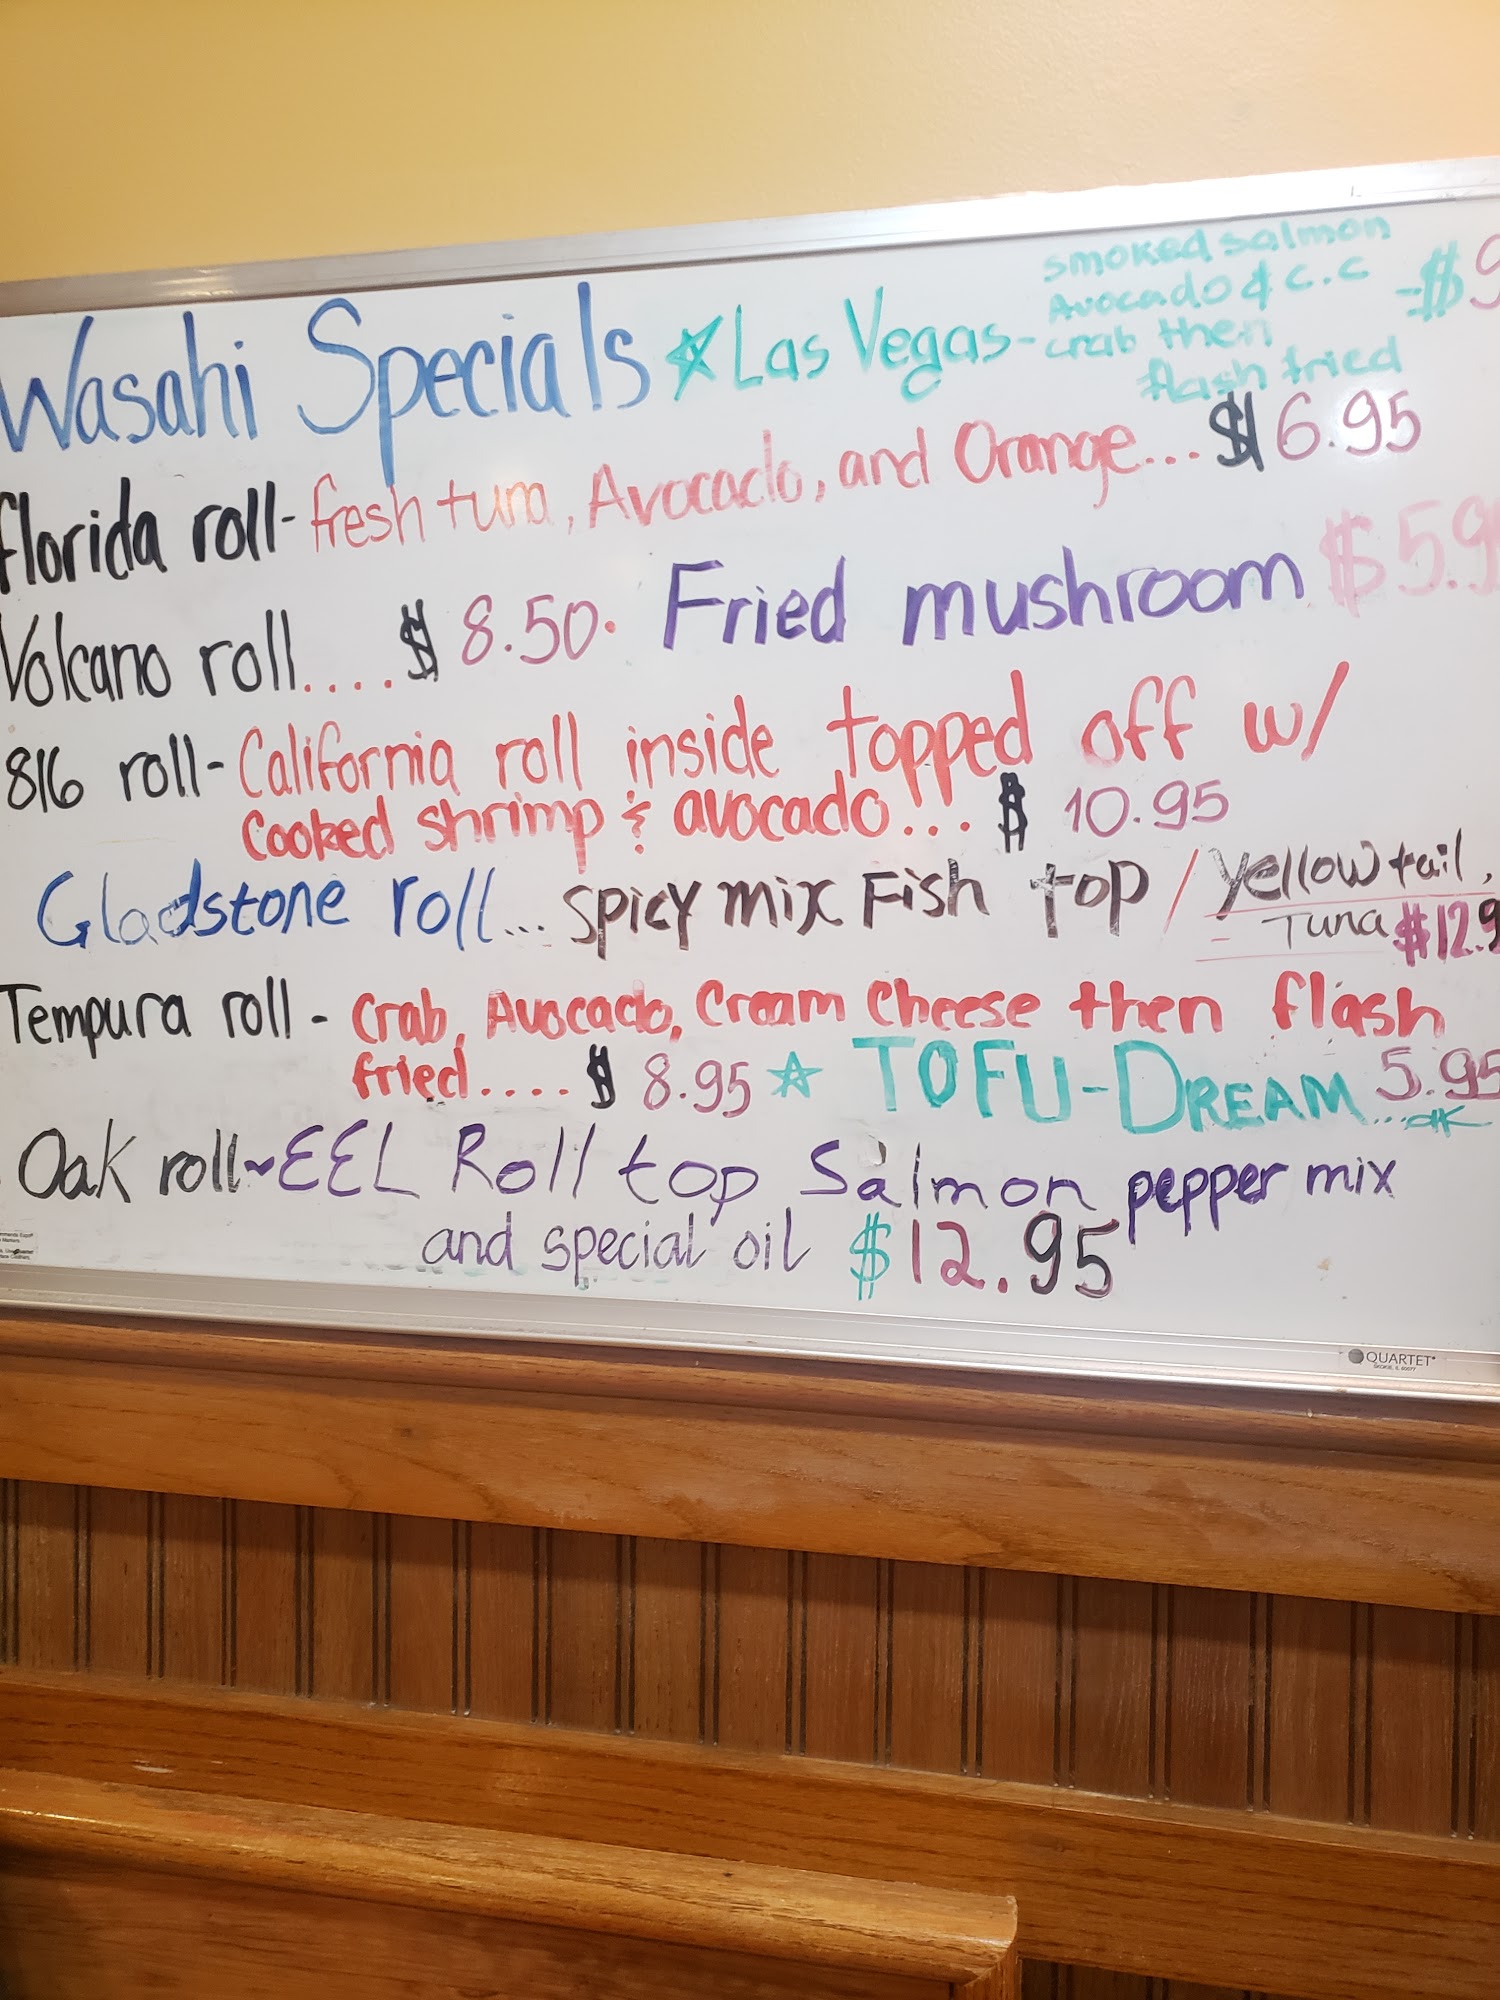 Wasahi Specials ☆ Las Vegas - smoked salmon
Avocado & c.c
crab then
flash fried
- $9
Florida roll - fresh tuna, Avocado, and Orange... $ 6.95
Volcano roll.... $ 8.50. Fried mushroom $5.9
816 roll - California roll inside topped off w/
cooked shrimp & avocado!!... $ 10.95
Gladstone roll... spicy mix Fish top / yellowtail,
- Tuna $12.9
Tempura roll - Crab, Avocado, Cream Cheese then flash
fried.... $ 8.95 ☆ TOFU-DREAM 5.95
Oak roll ~ EEL Roll top Salmon pepper mix
and special oil $12.95
QUARTET